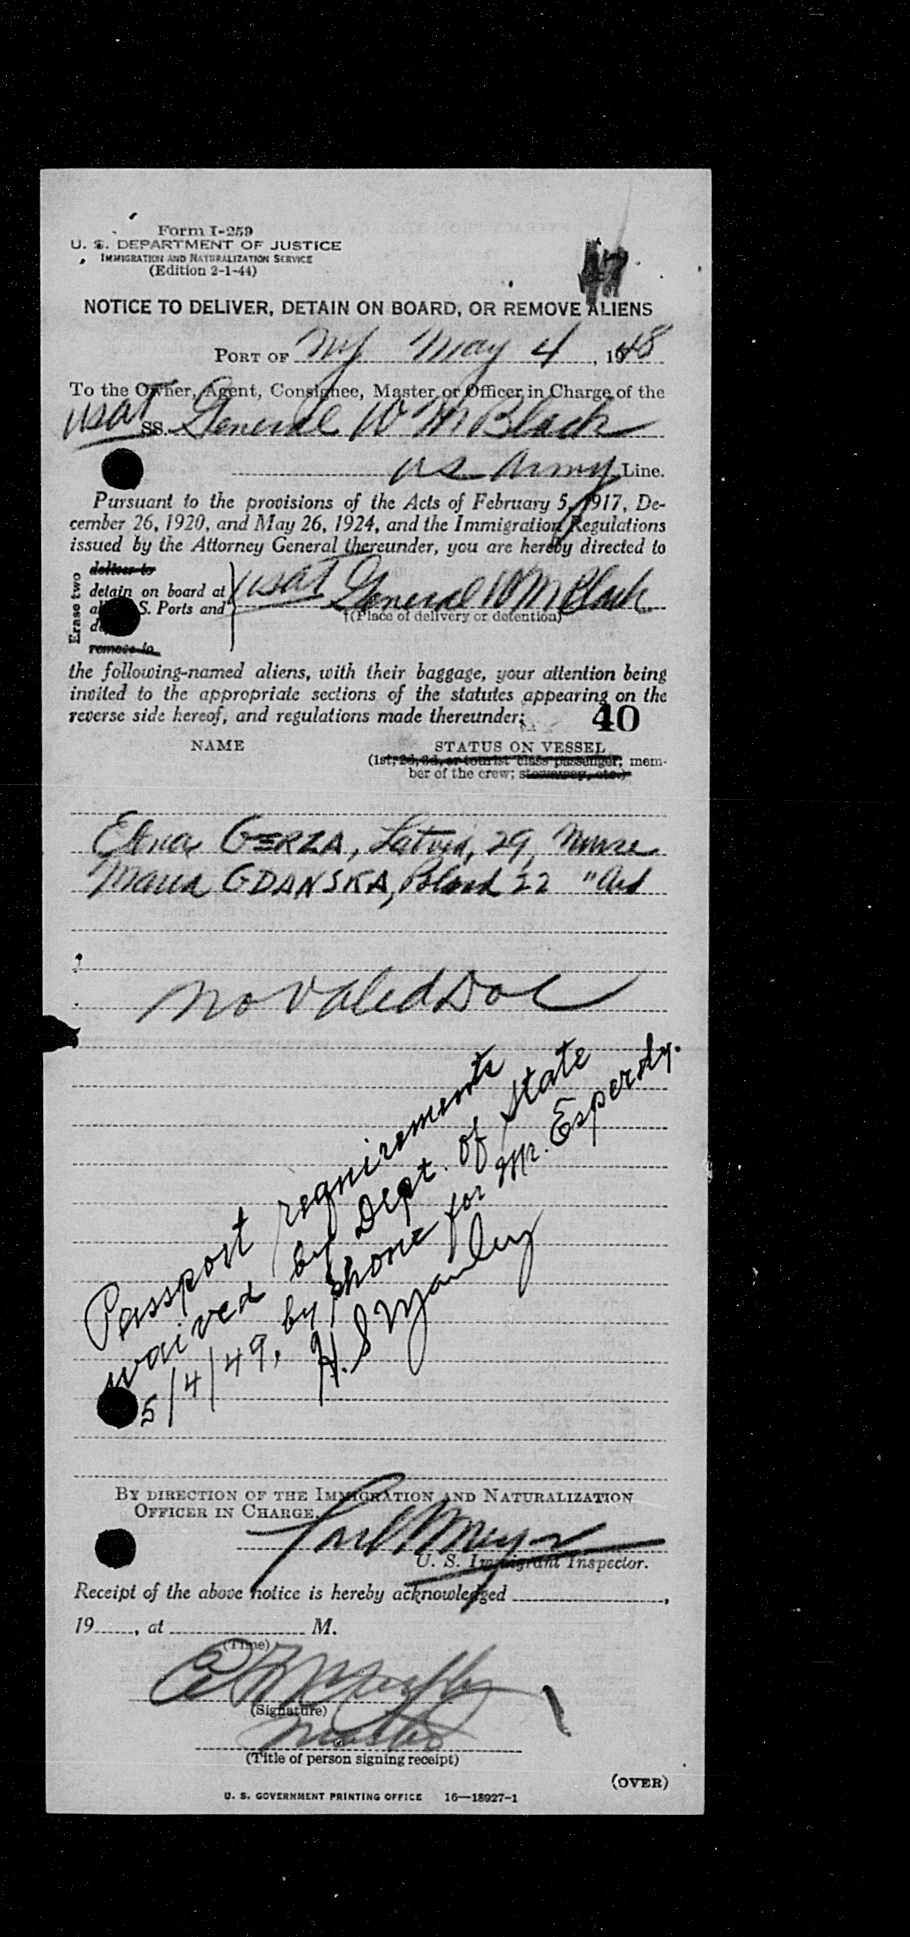 Form I-259
U. S. DEPARTMENT OF JUSTICE
IMMIGRATION AND NATURALIZATION SERVICE
(Edition 2-1-44)
47
NOTICE TO DELIVER, DETAIN ON BOARD, OR REMOVE ALIENS
PORT OF NY May 4, 1948
To the Owner, Agent, Consignee, Master or Officer in Charge of the
USAT SS. General W M Black
US Army Line.
Pursuant to the provisions of the Acts of February 5, 1917, De-
cember 26, 1920, and May 26, 1924, and the Immigration Regulations
issued by the Attorney General thereunder, you are hereby directed to
Erase two
deliver to
detain on board at
S. Ports and
remove to
USAT General W M Black
(Place of delivery or detention)
the following-named aliens, with their baggage, your attention being
invited to the appropriate sections of the statutes appearing on the
reverse side hereof, and regulations made thereunder:
40
NAME STATUS ON VESSEL
(1st, 2d, 3d, or tourist class passenger; mem-
ber of the crew; stowaway, etc.)
GERZA, Latvia, 29, Nurse
Maria GDANSKA, Poland 22 " Aid
No Valed Doc
Passport requirements
waived by Dept. of State
5/4/49, by phone for Mr. Esperdy.
H. S Manley
BY DIRECTION OF THE IMMIGRATION AND NATURALIZATION
OFFICER IN CHARGE.
U. S. Immigrant Inspector.
Receipt of the above notice is hereby acknowledged
19 , at M.
(Time)
(Signature)
Master
(Title of person signing receipt)
(OVER)
U. S. GOVERNMENT PRINTING OFFICE 16—18927-1